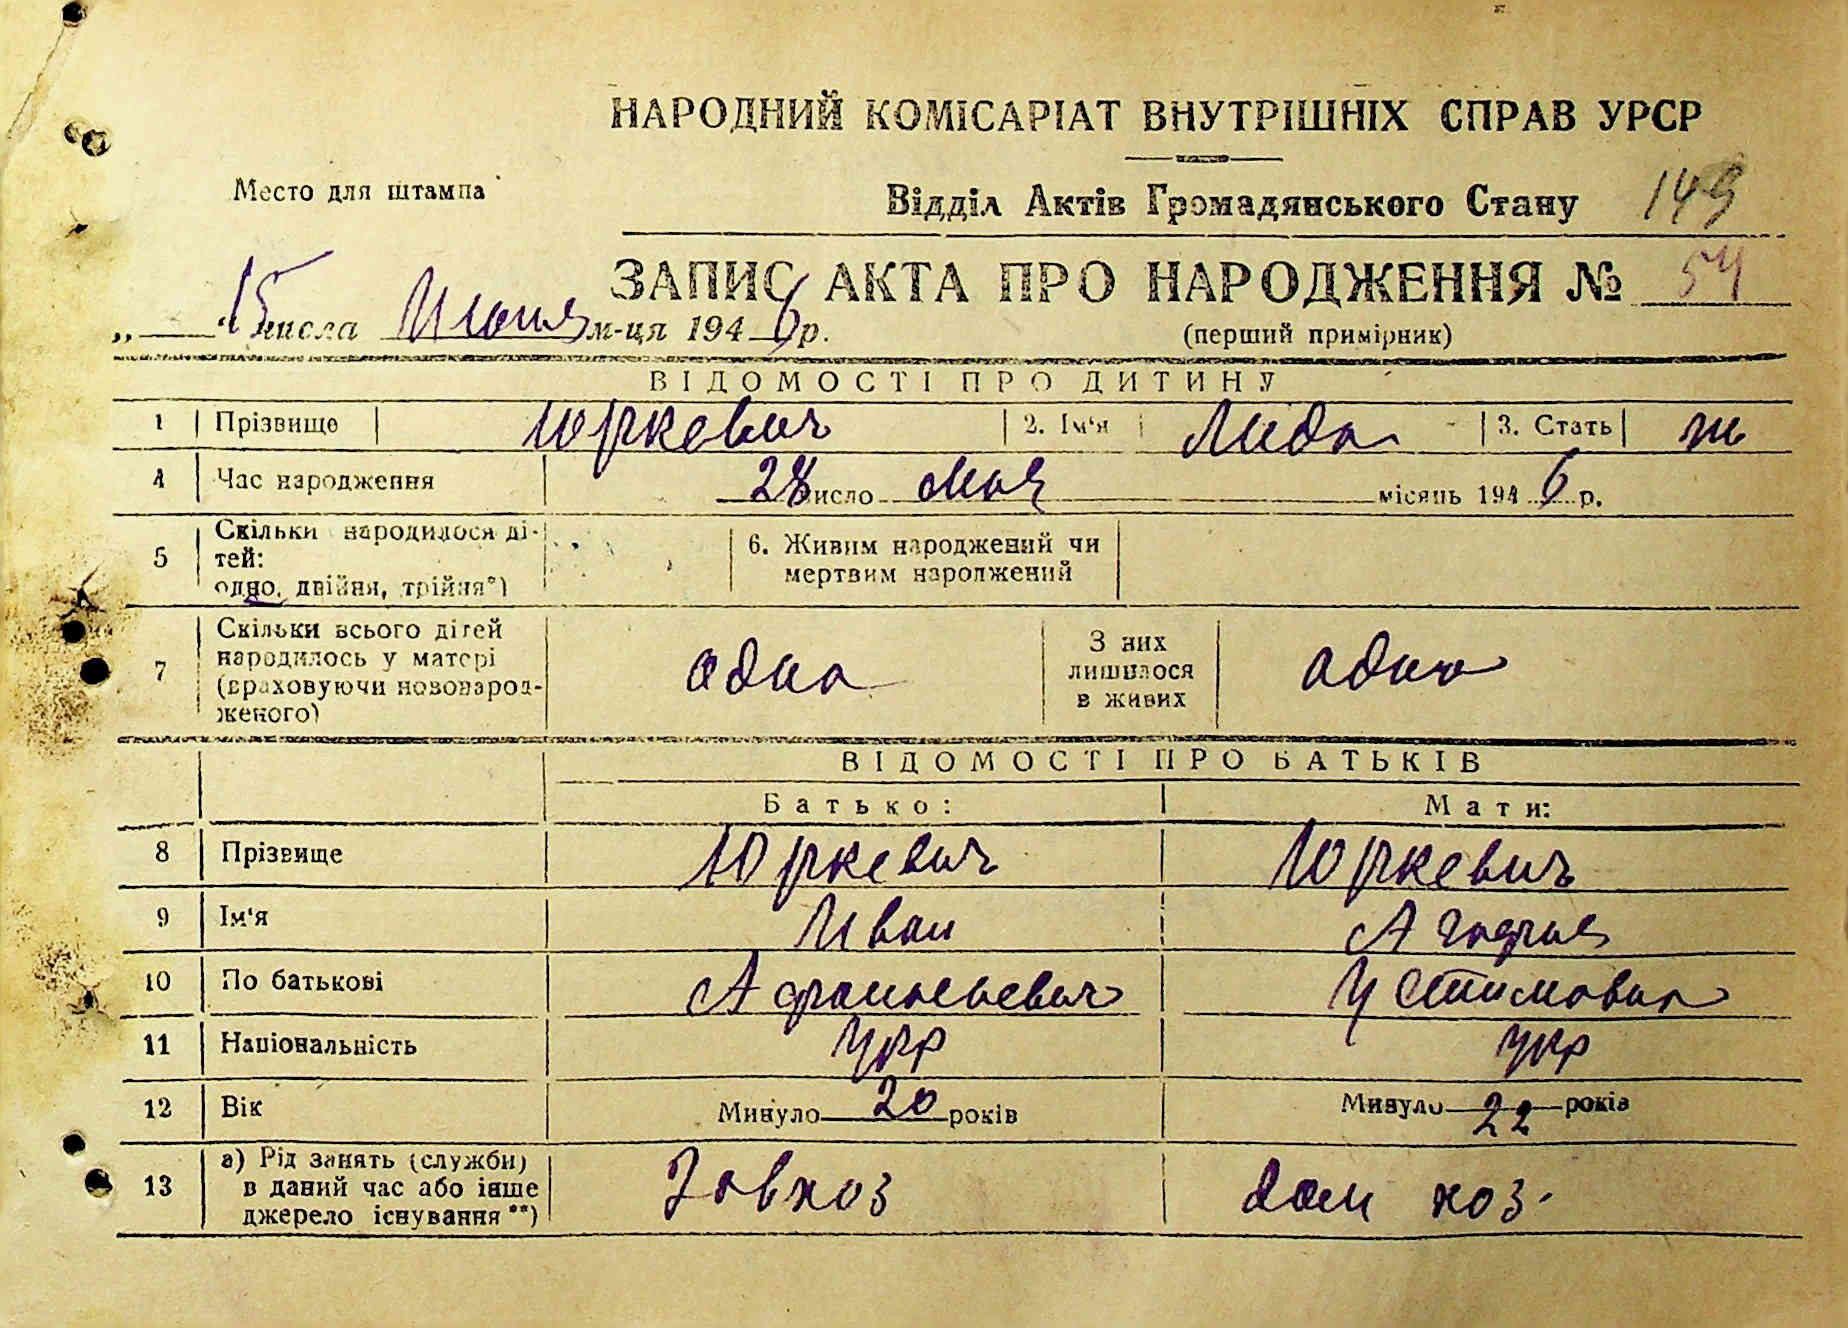 НАРОДНИЙ КОМІСАРІАТ ВНУТРІШНІХ СПРАВ УРСР
Место для штампа
Відділ Актів Громадянського Стану 149
ЗАПИС АКТА ПРО НАРОДЖЕННЯ № 54
„ “ 15 числа Июня м-ця 1946 р.
(перший примірник)
ВІДОМОСТІ ПРО ДИТИНУ
1 Прізвище Юркевич 2. Ім'я Лида 3. Стать ж
4 Час народження 28 число мая місяць 1946 р.
5 Скільки народилося ді-
тей:
одно, двійня, трійня*)
6. Живим народжений чи
мертвим народжений
7 Скільки всього дітей
народилось у матері
(враховуючи новонарод-
женого)
одна
З них
лишилося
в живих
одна
ВІДОМОСТІ ПРО БАТЬКІВ
Батько: Мати:
8 Прізвище Юркевич Юркевич
9 Ім'я Иван Агафия
10 По батькові Афанасьевич Устимовна
11 Національність укр укр
12 Вік Минуло 20 років Минуло 22 років
13 а) Рід занять (служби)
в даний час або інше
джерело існування**)
Завхоз дом хоз.